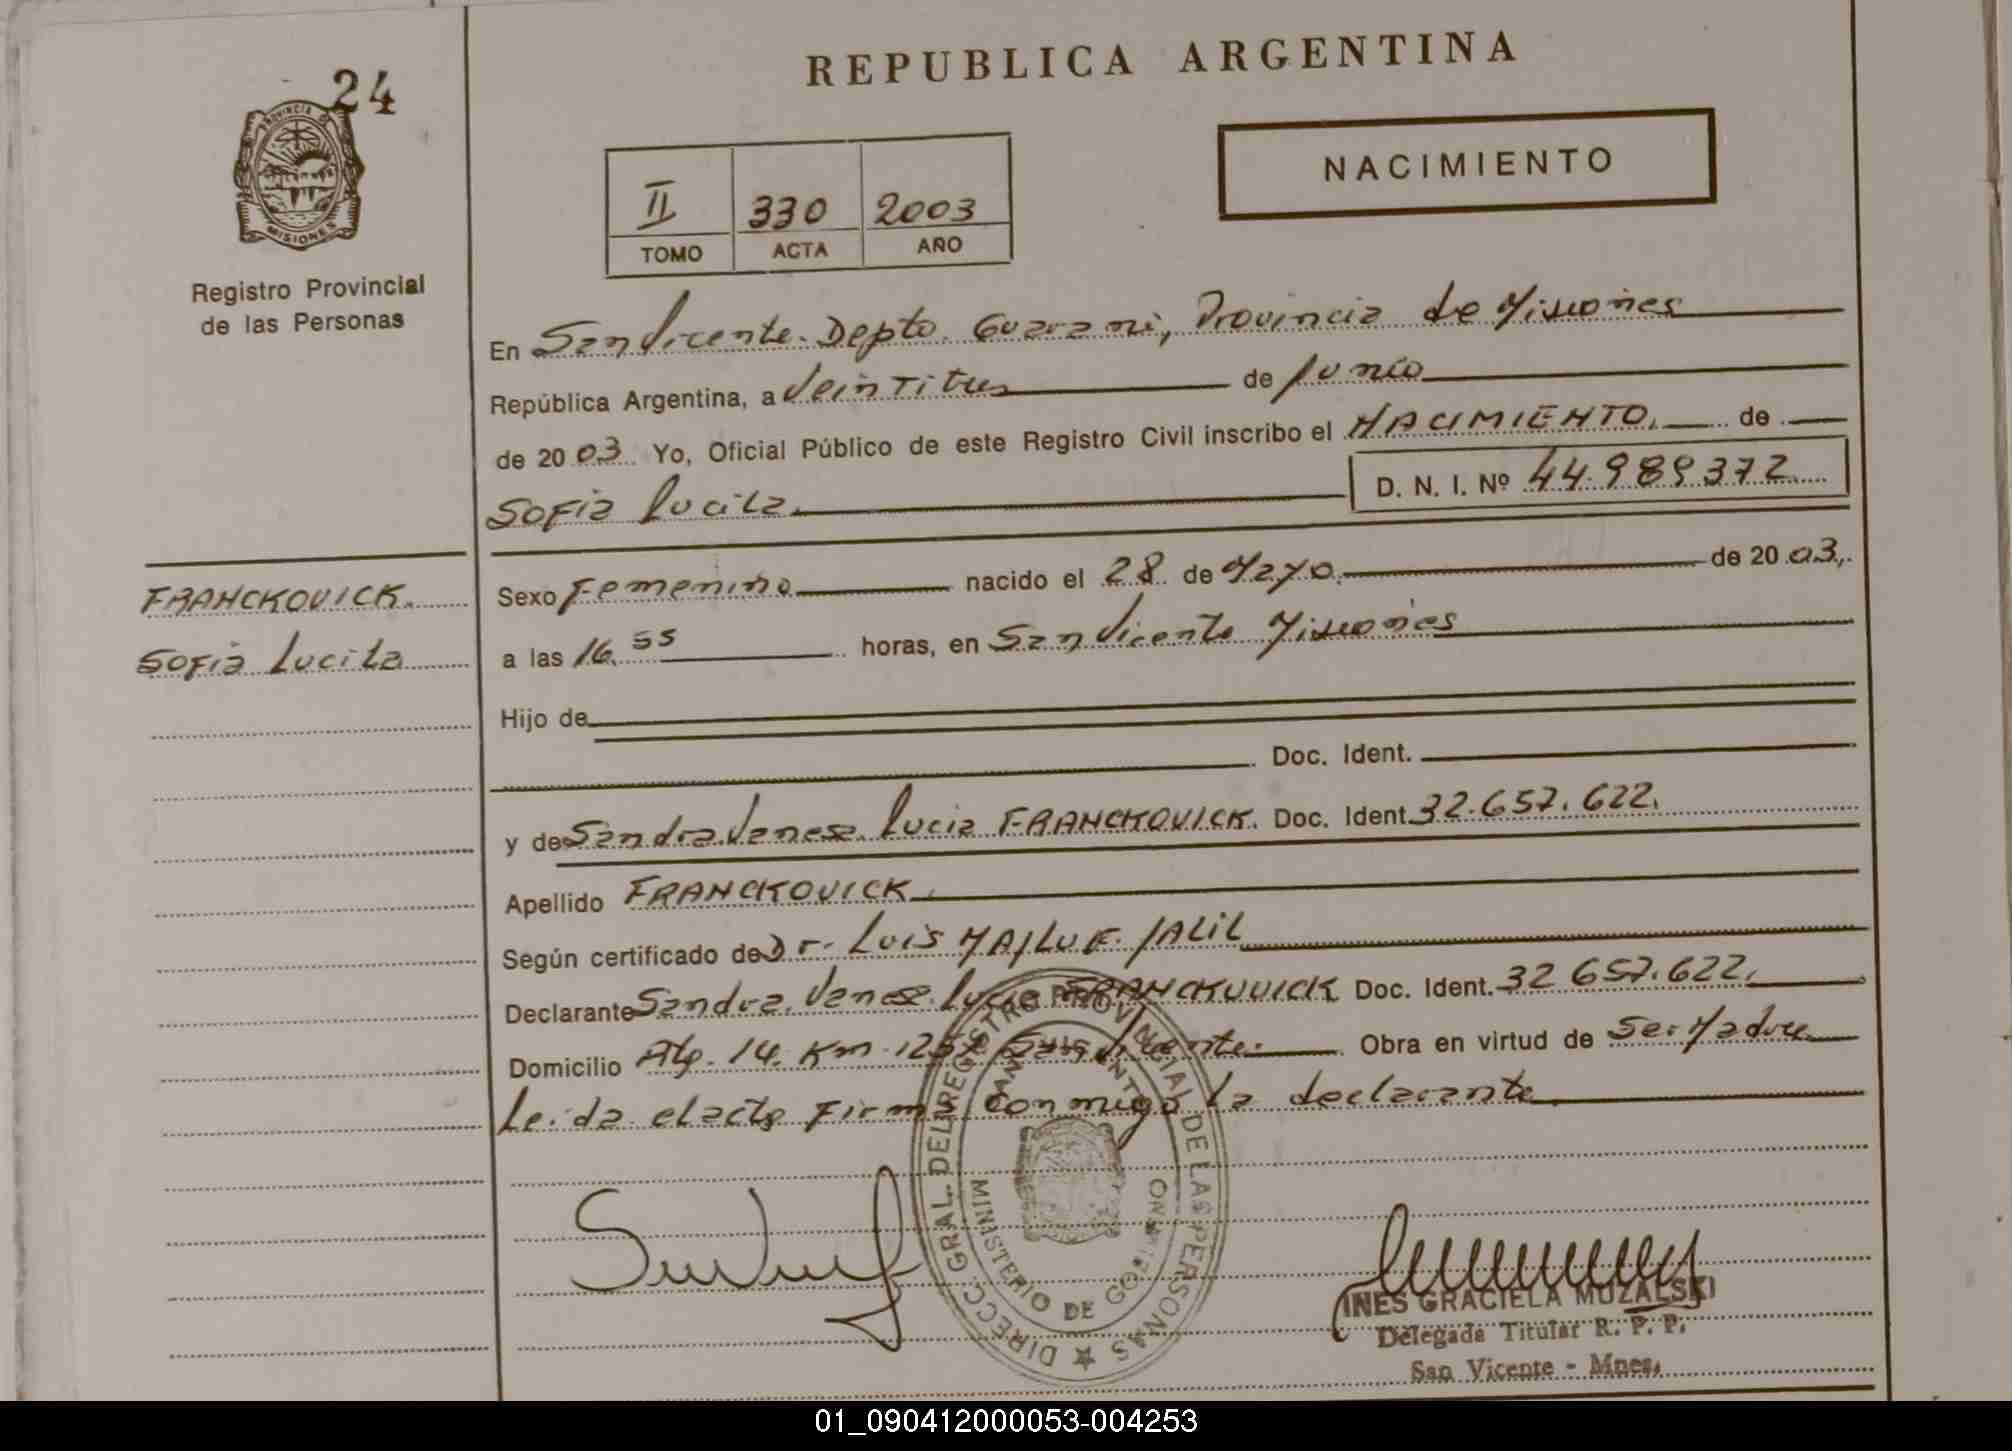 24
PROVINCIA DE
MISIONES
Registro Provincial
de las Personas
REPUBLICA ARGENTINA
II 330 2003
TOMO ACTA AÑO
NACIMIENTO
En San Vicente. Depto. Guarani, Provincia de Misiones
República Argentina, a Veintitres de Junio
de 2003. Yo, Oficial Público de este Registro Civil inscribo el NACIMIENTO. de
Sofia Lucila. D. N. I. Nº 44.989372
FRANCKOVICK.
Sofia Lucila
Sexo Femenino nacido el 28 de Mayo. de 2003.
a las 16.55 horas, en San Vicente Misiones
Hijo de
Doc. Ident.
y de Sandra Vanesa Lucia FRANCKOVICK. Doc. Ident. 32.657.622.
Apellido FRANCKOVICK.
Según certificado de Dr. Luis MAJLUF JALIL
Declarante Sandra Vanesa Lucia FRANCKOVICK Doc. Ident. 32 657.622.
Domicilio Km. San Vicente. Obra en virtud de Ser Madre
Leida el acta Firma conmigo La declarante
DIRECC. GRAL. DEL REGISTRO PROVINCIAL DE LAS PERSONAS
SAN VICENTE
MISIONES
MINISTERIO DE GOBIERNO
INES GRACIELA MUZALSKI
Delegada Titular R. P. P.
San Vicente - Mnes.
01_090412000053-004253